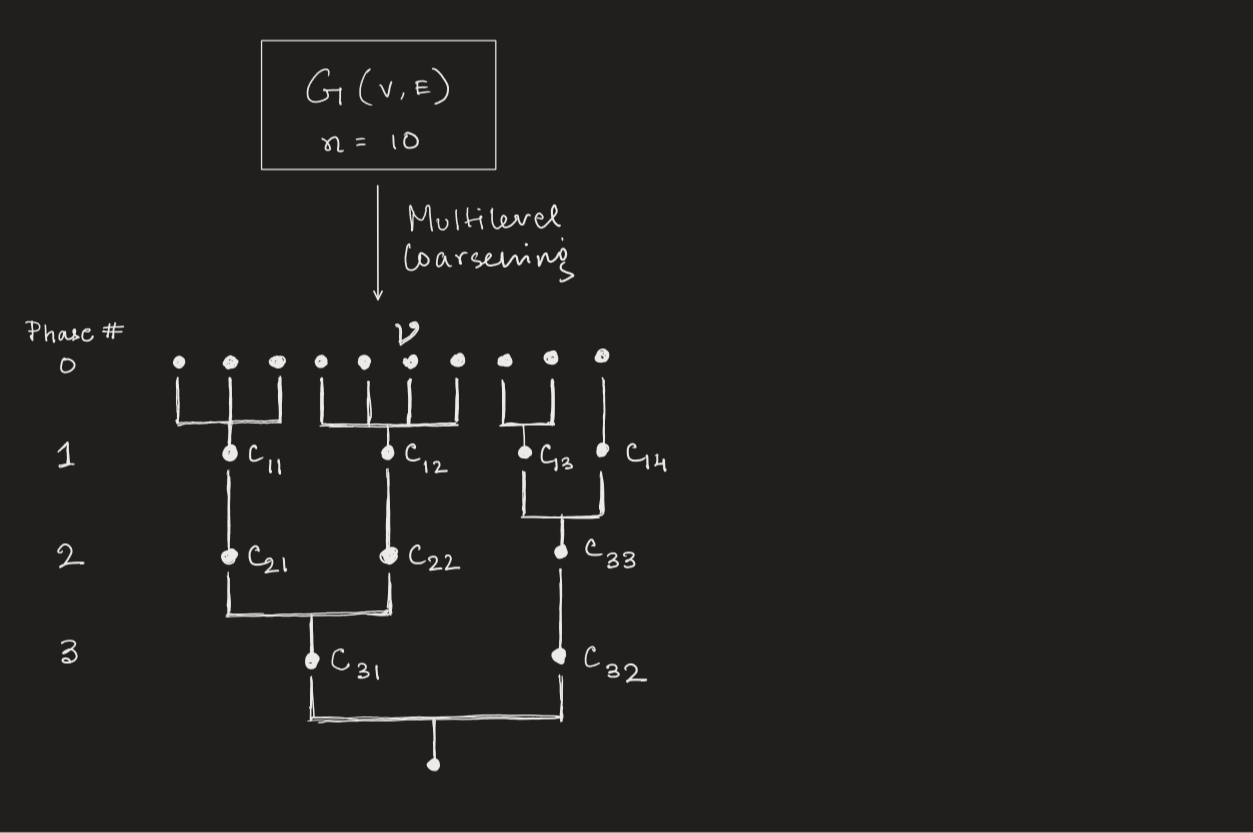 G(V,E)
n = 10
Multilevel
Coarsening
Phase #
v
0
1 C11 C12 C13 C14
2 C21 C22 C33
3 C31 C32